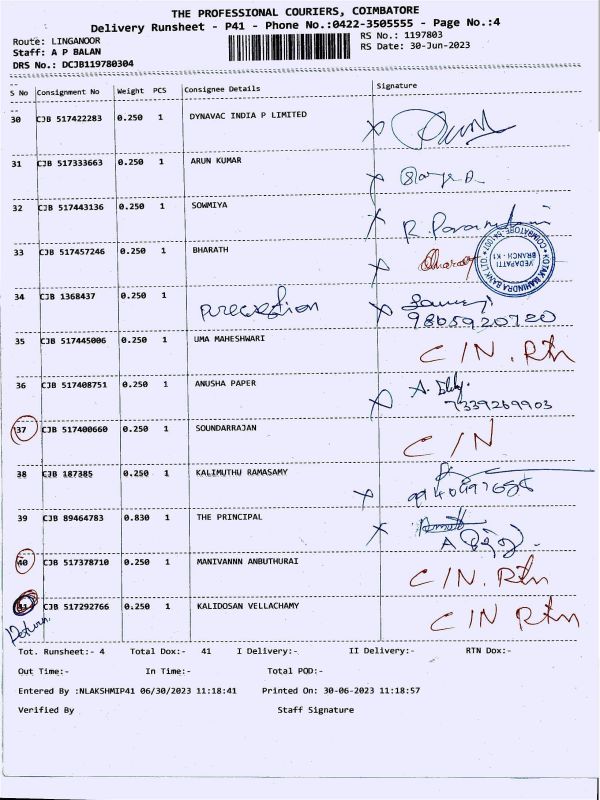 THE PROFESSIONAL COURIERS, COIMBATORE
Delivery Runsheet - P41 - Phone No.:0422-3505555 - Page No.:4
Route: LINGANOOR
Staff: A P BALAN
DRS No.: DCJB119780304
RS No.: 1197803
RS Date: 30-Jun-2023
S No Consignment No Weight PCS Consignee Details Signature
30 CJB 517422283 0.250 1 DYNAVAC INDIA P LIMITED X
31 CJB 517333663 0.250 1 ARUN KUMAR X
32 CJB 517443136 0.250 1 SOWMIYA X
33 CJB 517457246 0.250 1 BHARATH X
KOTAK MAHINDRA BANK LTD * COIMBATORE 641007 *
VEDAPATTI
BRANCH - K1
34 CJB 1368437 0.250 1 X
9865920720
35 CJB 517445006 0.250 1 UMA MAHESHWARI C/N. Rtn
36 CJB 517408751 0.250 1 ANUSHA PAPER X
7339269903
37 CJB 517400660 0.250 1 SOUNDARRAJAN C/N
38 CJB 187385 0.250 1 KALIMUTHU RAMASAMY X
39 CJB 89464783 0.830 1 THE PRINCIPAL X
40 CJB 517378710 0.250 1 MANIVANNN ANBUTHURAI C/N. Rtn
41 CJB 517292766 0.250 1 KALIDOSAN VELLACHAMY C/N Rtn
Return.
Tot. Runsheet:- 4 Total Dox:- 41 I Delivery:- II Delivery:- RTN Dox:-
Out Time:- In Time:- Total POD:-
Entered By :NLAKSHMIP41 06/30/2023 11:18:41 Printed On: 30-06-2023 11:18:57
Verified By Staff Signature